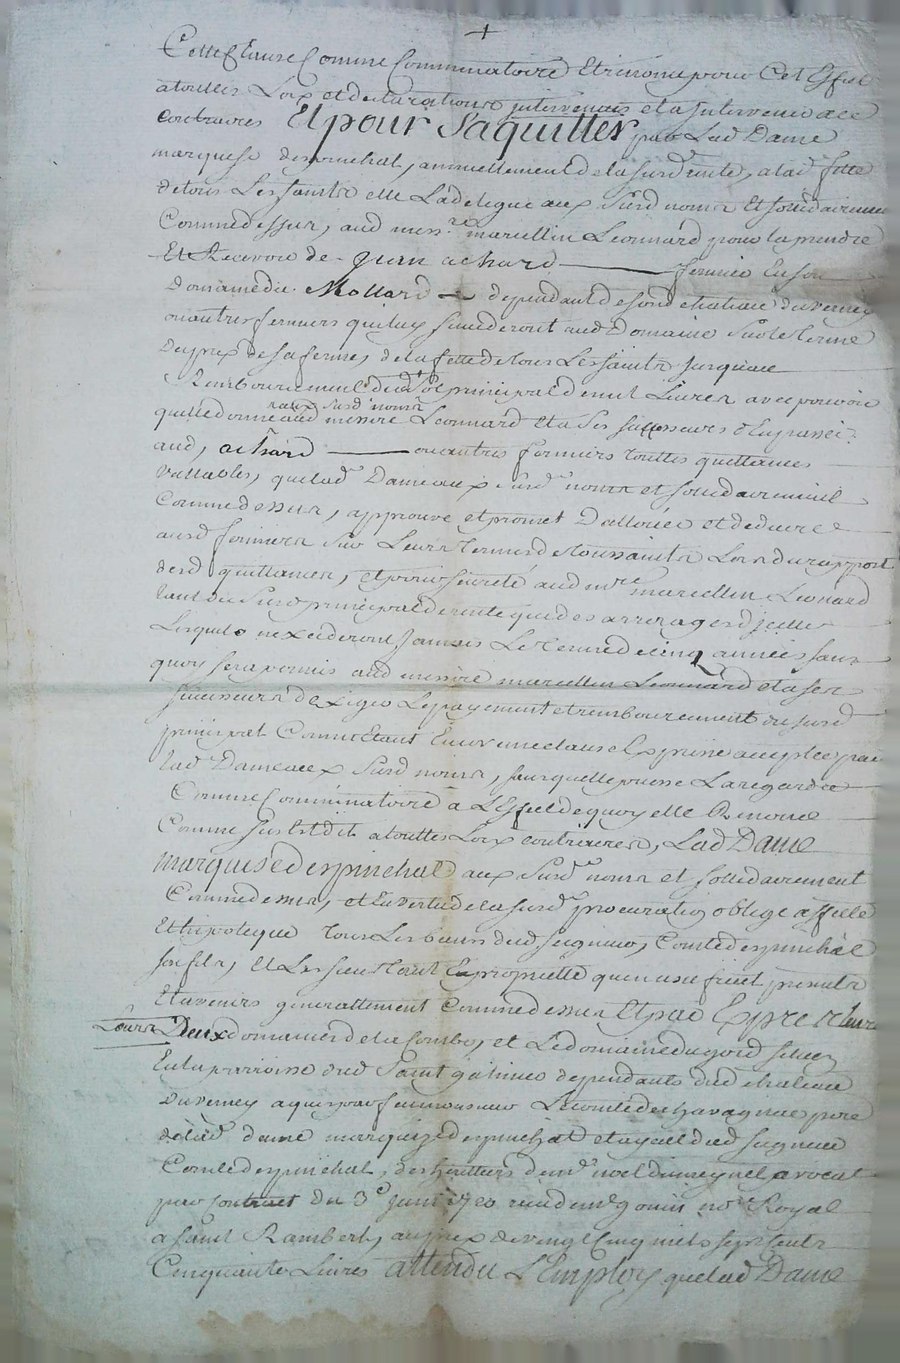 +
Cette Clause Comme Comminatoire Et renonce pour Cet Effet
a touttes Loix et declarations intervenues et a Intervenir a ce
contraires Et pour Saquitter par Lad Dame
marquise despinchal, annuellement de la surd rente, a lad fette
de tous Les saints elle La delegue aux surd noms Et solidairement
Comme dessus, aud messre marcellin Leonnard pour la prendre
Et Recevoir de Jean achard fermier En son
Domaine du Mollard dependant de sond chateau du verney
ou autres fermiers quiluy succederont aud Domaine sur le terme
du prix de sa ferme, de la fette de tous Les saints Jusqu'au
Remboursement dud sort principal de mil Livres avec pouvoir
aux surd noms
quelle donne aud messire Leonnard et a ses successeurs d'En passer
aud, achard ou autres fermiers touttes quittances
vallables, que lad Dame aux surd noms et solidairement
Comme dessus, approuve et promet D'allouer et deduire
ausd fermiers sur Leurs termes de toussaints Lors du rapport
desd quittances, et pour seureté aud mre marcellin Leonard
tant du surd principal de rente que des arrerages d'jcelle
Lesquels nexcederont Jamais Le terme de cinq années sans
quoy sera permis aud messire marcellin Leonnard et a ses
successeurs d'exiger Le payement et remboursement du surd
principal Comme Etant Encor une clause Exprisse acceptée par
lad Dame aux surd noms, sans quelle puisse La regarder
Comme Comminatoire à L'Effet de quoy elle Renonce
Comme Jus Est dit a touttes Loix contraires, Lad Dame
marquise despinchal aux surd noms et sollidairement
Comme dessus, et En vertu de la surd procuration oblige affecte
Et hipoteque tous Les biens dud seigneur, Comte despinchal
son fils, Et Les siens tant En proprietté quen usufruit presents
Et avenirs generallement Comme dessus Et par Exprés leurs
Leurs Deux domaines de la Combe, et Le domaine du gord situez
En la parroisse dud Saint galmier dependants dud chateau
Du verney acquis par feu monsieur Le comte de chavagnac pere
de lad dame marquize despinchal et ayeul dud seigneur
Comte despinchal, des heritiers de mre noel dumeynel avocat
par contract du 3e Juin 1720 reçu de me gonin nore Royal
a saint Rambert, au prix de vingt Cinq mil sept cents
Cinquante Livres attendu L'Employ que lad Dame